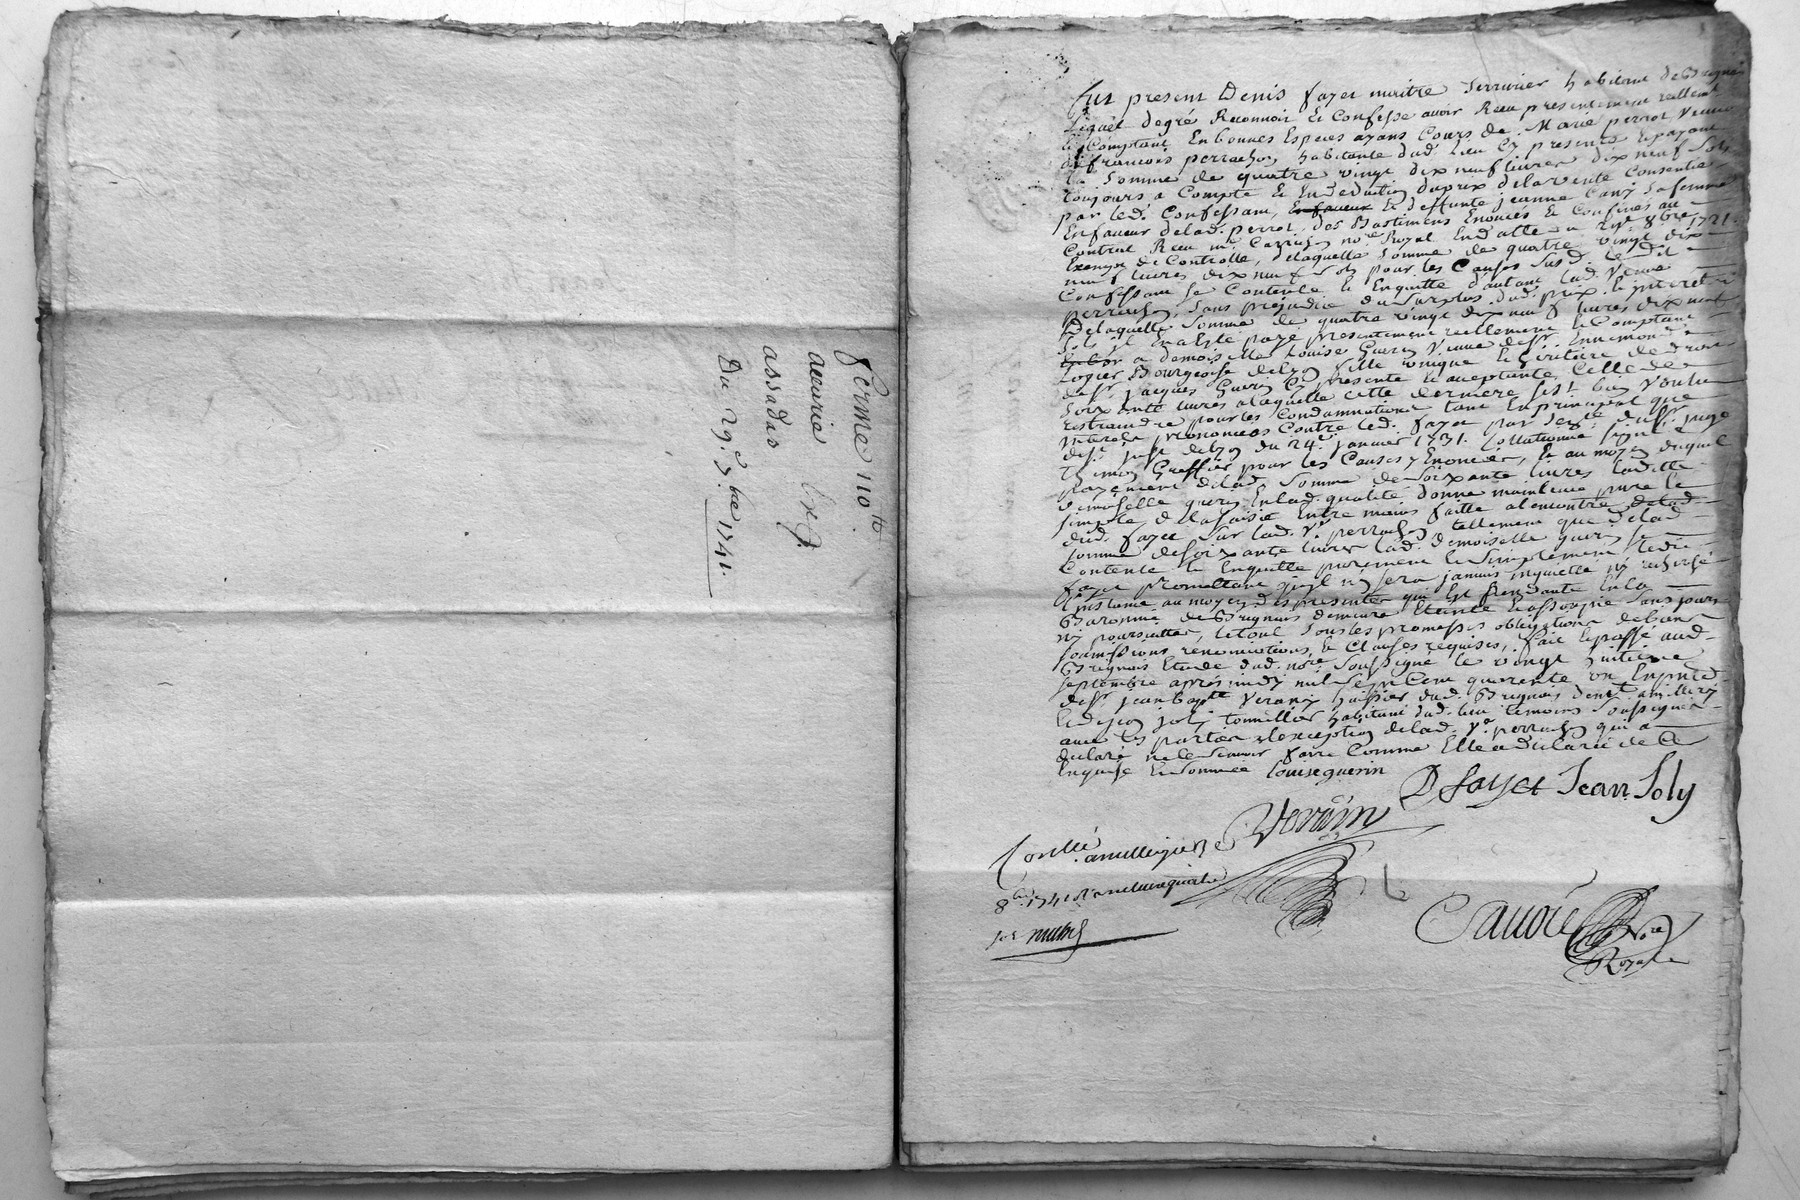 ferme 110tt
auvrie
assadas
Du 29e. 7bre 1741.
fut present Denis fayet maitre Serrurier habitant de Brignais
lequel degré Reconnoit et Confesse avoir Receu presentement reellemt
et Comptant En bonnes Especes ayans Cours de Marie perrot Veuve
de francois perrachon habitante dud. lieu Cy presente et payant
la Somme de quatre vingt dix neuf livres dix neuf Sols
toujours a Compte et En deduction du prix de la vente Consentie
par led. Confessant, et deffunte jeanne Cany Sa femme
En faveur de lad. perrot, des Bastimens Enoncés et Confinés au
Contrat Receu me. nore Royal En datte du 8bre 1721.
de Controlle, de laquelle Somme de quatre vingt dix
neuf livres dix neuf Sols pour les Causes Susd. ledit
Confessant Se Contente et En quitte d'autant lad. Veuve
perrachon, Sans préjudice du Surplus dud. prix et interet
De laquelle Somme de quatre vingt dix neuf livres dix neuf
Sols il En a Esté payé presentement reellement et Comptant
a demoiselle Louise Guerin Veuve de Sr. Ennemond
Bourgeoise de Lyon fille Unique et heritiere de droit
de Sr. jacques Guerin Cy presente et acceptante, Celle de
Soixante livres a laquelle Cette derniere S'est bien Voulu
restraindre pour les Condamnations tant En principal que
interets prononcées Contre led. fayet par
de Lyon du 24e. janvier 1731. Collationné Signé
Greffier pour les Causes y Enoncées, Et au moyen duquel
payement de lad. Somme de Soixante livres laditte
Demoiselle guerin En lad. qualité donne mainlevée pure et
simple, de la Saisie Entre mains faitte a l'encontre
dud. fayet Sur lad. Ve. perrachon tellement que de lad.
Somme de Soixante livres lad. demoiselle guerin Se
Contente et En quitte purement et Simplement ledit
fayet promettant qu'il n'en Sera jamais inquietté ny recherché
l'instance au moyen des presentes qui Est pendante En la
Baronnie de Brignais demeure Eteinte et assoupie Sans pouvoir
ny poursuitte, le tout Sous les promesses obligations de biens
soumissions renonciations, et Clauses requises. fait et passé aud.
Brignais Etude dud. nore Soussigné le vingt huitieme
Septembre après midy mil Sept Cent quarente un En presence
de Sr. jean bapte Verany huissier dud. Brignais
et de jean joly tonnellier habitant dud. lieu temoins Soussignés
avec les parties a l'exception de lad. Ve. perrachon qui a
declaré ne le Scavoir faire Comme Elle a declaré de Ce
Enquise et Sommée Louise guerin
D fayet Jean Joly
Verani
Conllé a
8bre 1741
Sols
nore
Royal